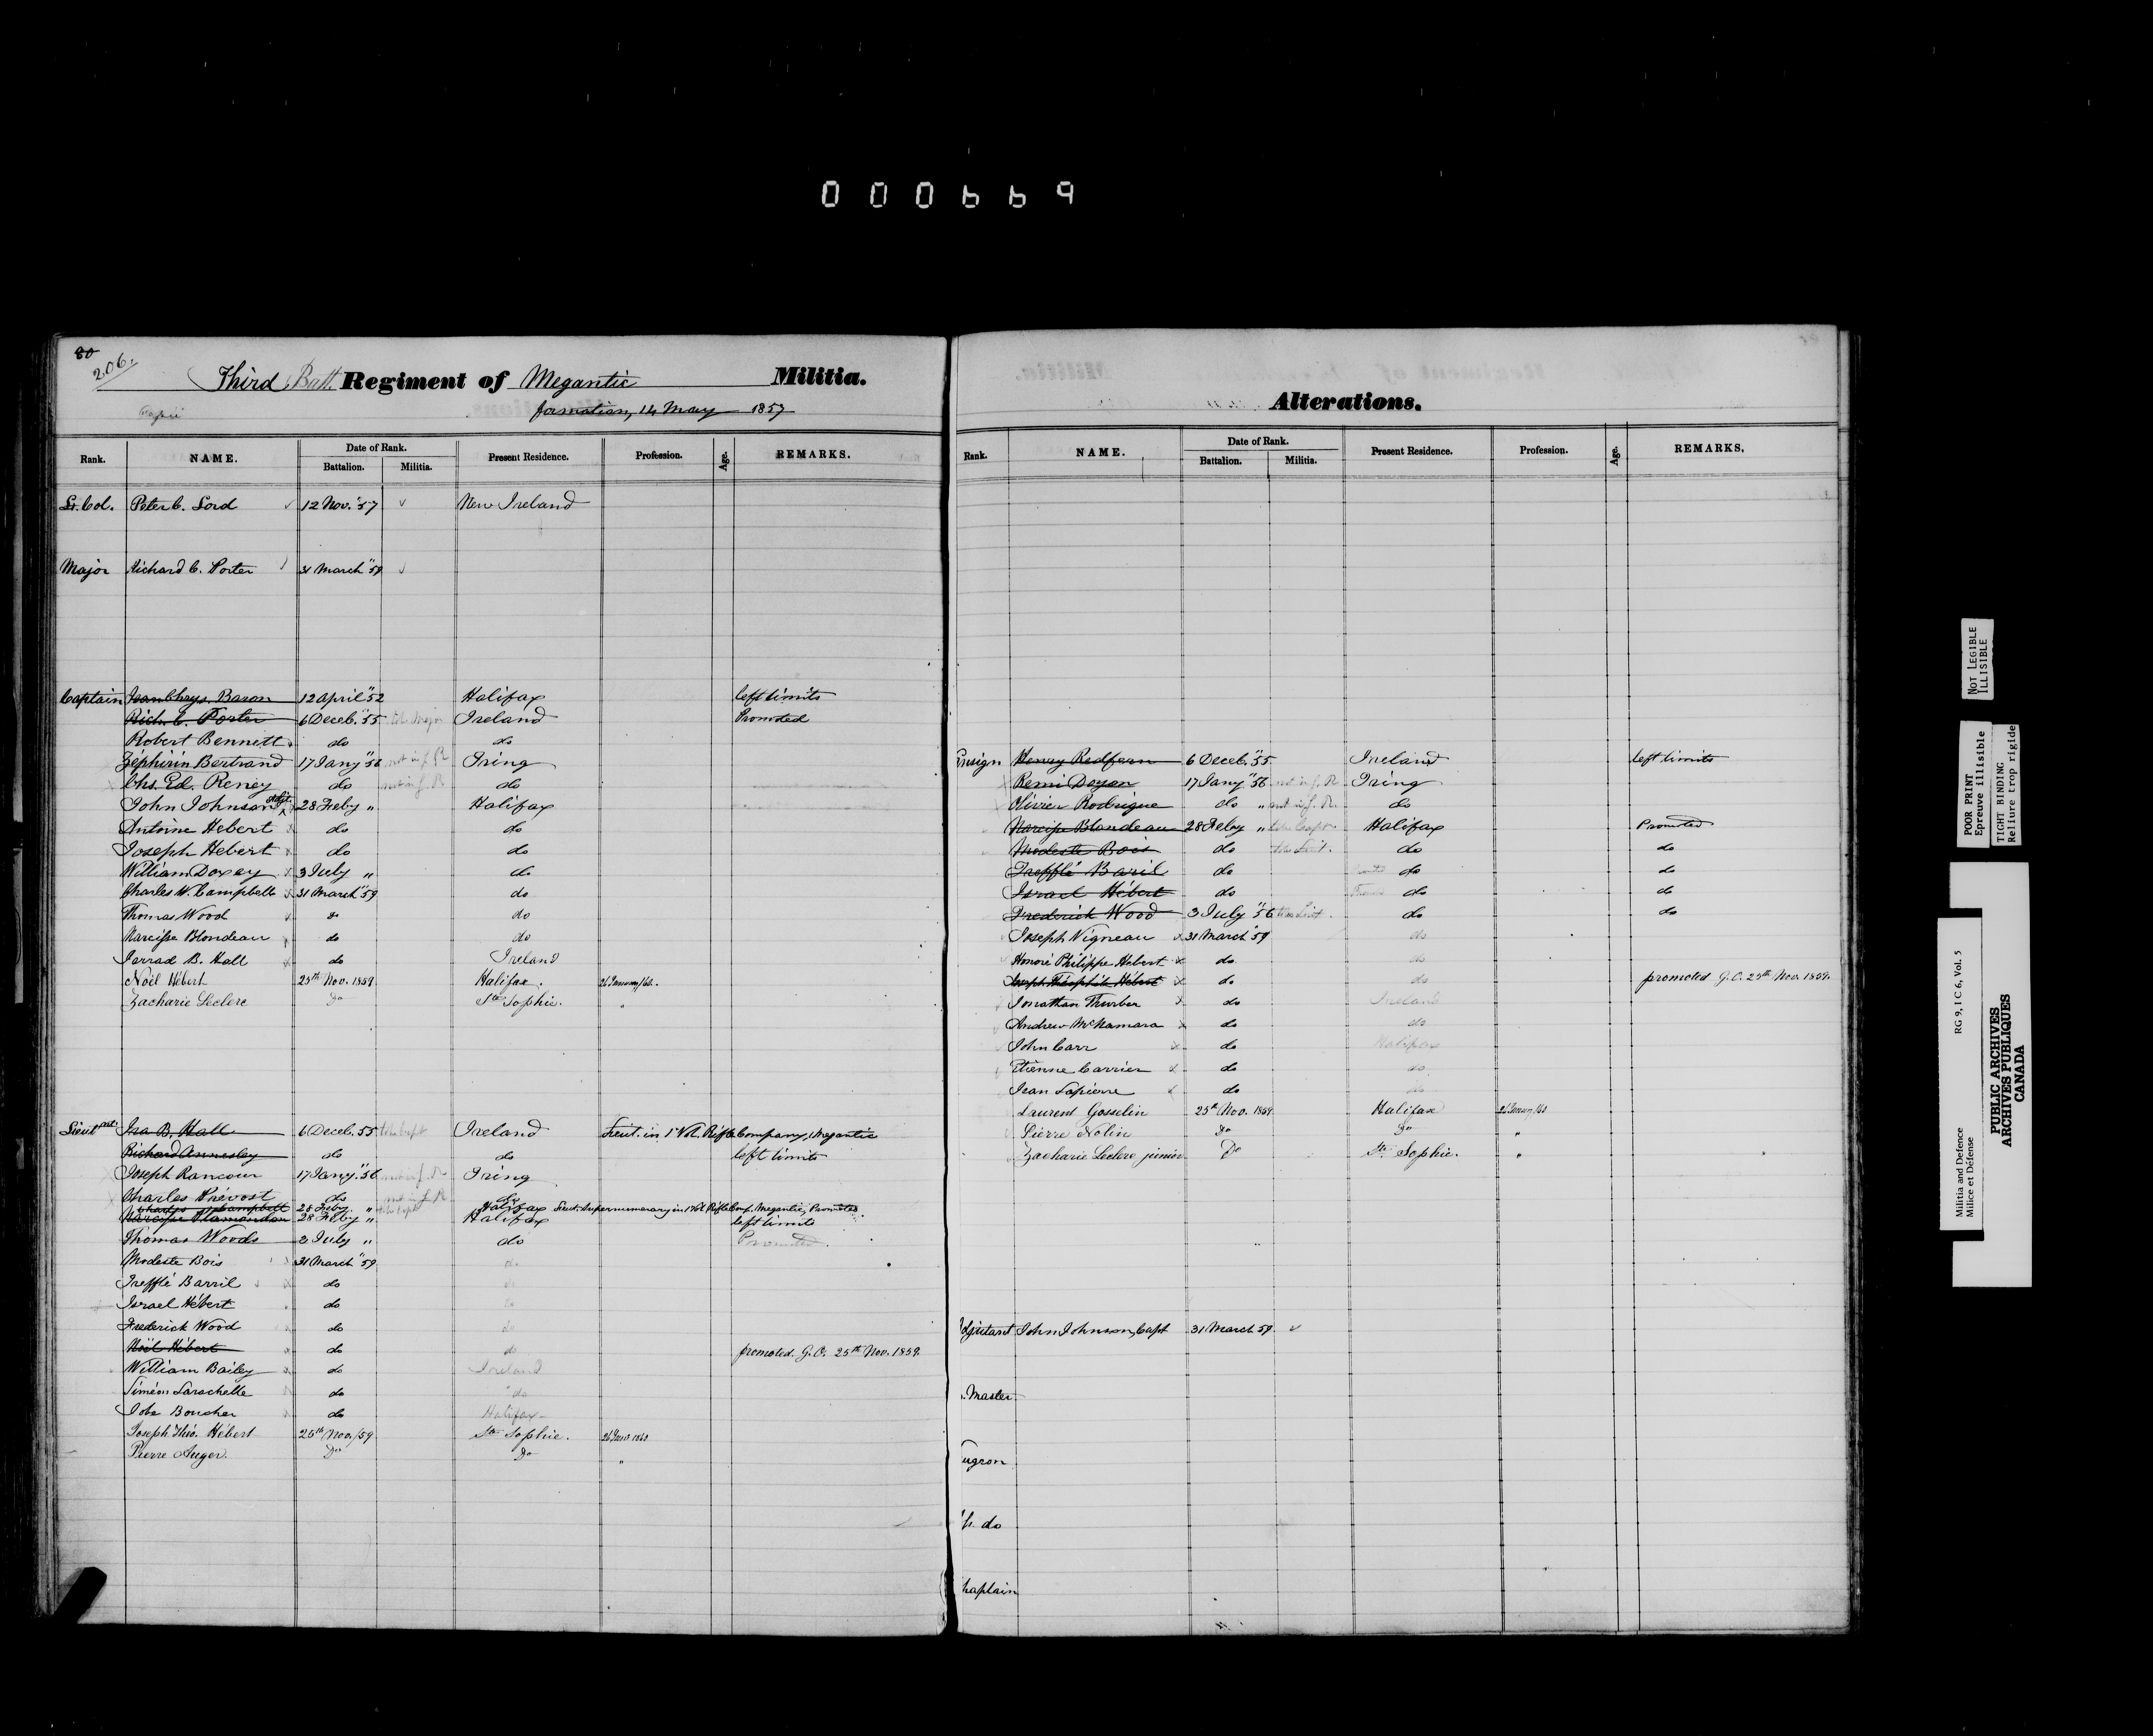 000669
80
206.
Third Batt. Regiment of Megantic Militia.
formation, 14 May 1857
Rank. NAME. Date of Rank. Battalion. Militia. Present Residence. Profession. Age. REMARKS.
Lt. Col. Peter C. Lord 12 Nov. "57 New Ireland
Major Richard C. Porter 31 March "59
Captain Jean Chrys. Baron 12 April "52 Halifax left limits
Rich. C. Porter 6 Deceb. "55 Ireland Promoted
Robert Bennett do do
Zéphirin Bertrand 17 Jany "56 not in f. R Tring
Chs. Ed. Reney do not in f. R do
John Johnson Adjt. 28 Feby " Halifax
Antoine Hebert do do
Joseph Hebert do do
William Doxey 3 July " do
Charles W. Campbell 31 March "59 do
Thomas Wood do do
Narcisse Blondeau do do
Jarrad B. Hall do Ireland
Noël Hébert 25th Nov. 1859 Halifax.
Zacharie Leclerc Do Ste Sophie. "
Lieutnt. Ira B. Hall 6 Deceb. 55 Ireland Lieut. in 1st Vol. Rifle Company, Megantic
Richard Annesley do do left limits
Joseph Rancour 17 Jany "56 not in f. R Tring
Charles Prévost do not in f. R do
Charles W. Campbell 28 Feby. " Halifax Lieut. Supernumerary in 1 Vol. Rifle Comp. Megantic, Promoted
Narcisse Plamondon 28 Feby " Halifax left limits
Thomas Woods 3 July " do Promoted.
Modeste Bois 31 March "59 do
Trefflé Barril do do
Israel Hébert do do
Frederick Wood do do
Noël Hébert do do promoted. G.O. 25th Nov. 1859.
William Bailey do Ireland
Siméon Larochelle do do
Jobe Boucher do Halifax
Joseph Théo. Hébert 25th Nov./59 Ste Sophie.
Pierre Auger. Do Do "
Alterations.
Rank. NAME. Date of Rank. Battalion. Militia. Present Residence. Profession. Age. REMARKS.
Ensign Henry Redfern 6 Deceb. "55 Ireland left limits
Remi Doyon 17 Jany "56 not in f. R Tring
Olivier Rodrigue do " not in f. R. do
Narcisse Blondeau 28 Feby " Halifax Promoted
Modeste Bois do do do
Trefflé Baril do do do
Israel Hébert do do do
Frederick Wood 3 July "56 do do
Joseph Vigneau 31 March "59 do
Honoré Philippe Hebert do do
Joseph Théophile Hébert do do promoted G.O. 25th Nov. 1859.
Jonathan Thurber do Ireland
Andrew McNamara do do
John Carr do Halifax
Etienne Carrier do do
Jean Lapierre do do
Laurent Gosselin 25th Nov. 1859 Halifax
Pierre Nolin Do Do "
Zacharie Leclerc junior Do Ste Sophie. "
djutant John Johnson, Capt 31 March 59.
. Master
urgeon
do
haplain
NOT LEGIBLE
ILLISIBLE
POOR PRINT
Epreuve illisible
TIGHT BINDING
Reliure trop rigide
Militia and Defence RG 9, I C 6, Vol. 5
Milice et Défense
PUBLIC ARCHIVES
ARCHIVES PUBLIQUES
CANADA